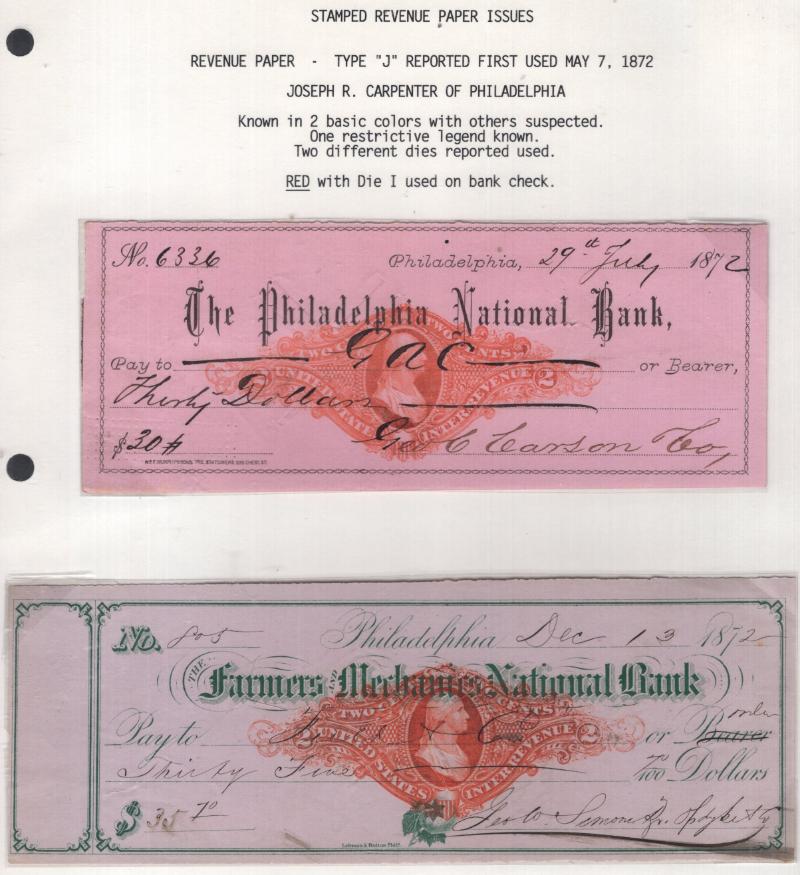 STAMPED REVENUE PAPER ISSUES
REVENUE PAPER - TYPE "J" REPORTED FIRST USED MAY 7, 1872
JOSEPH R. CARPENTER OF PHILADELPHIA
Known in 2 basic colors with others suspected.
One restrictive legend known.
Two different dies reported used.
RED with Die I used on bank check.
No. 6336 Philadelphia, 29th July 1872
The Philadelphia National Bank,
TWO CENTS
Pay to G a C or Bearer,
UNITED STATES INTER. REVENUE 2
Thirty Dollars
$30 Geo C Carson & Co,
No. 805 Philadelphia Dec 13 1872
THE Farmers AND Mechanics National Bank
TWO CENTS
Pay to or Bearer order
2 UNITED STATES INTER. REVENUE 2
Thirty Five 70/100 Dollars
$ 35 70
Geo W. Simons